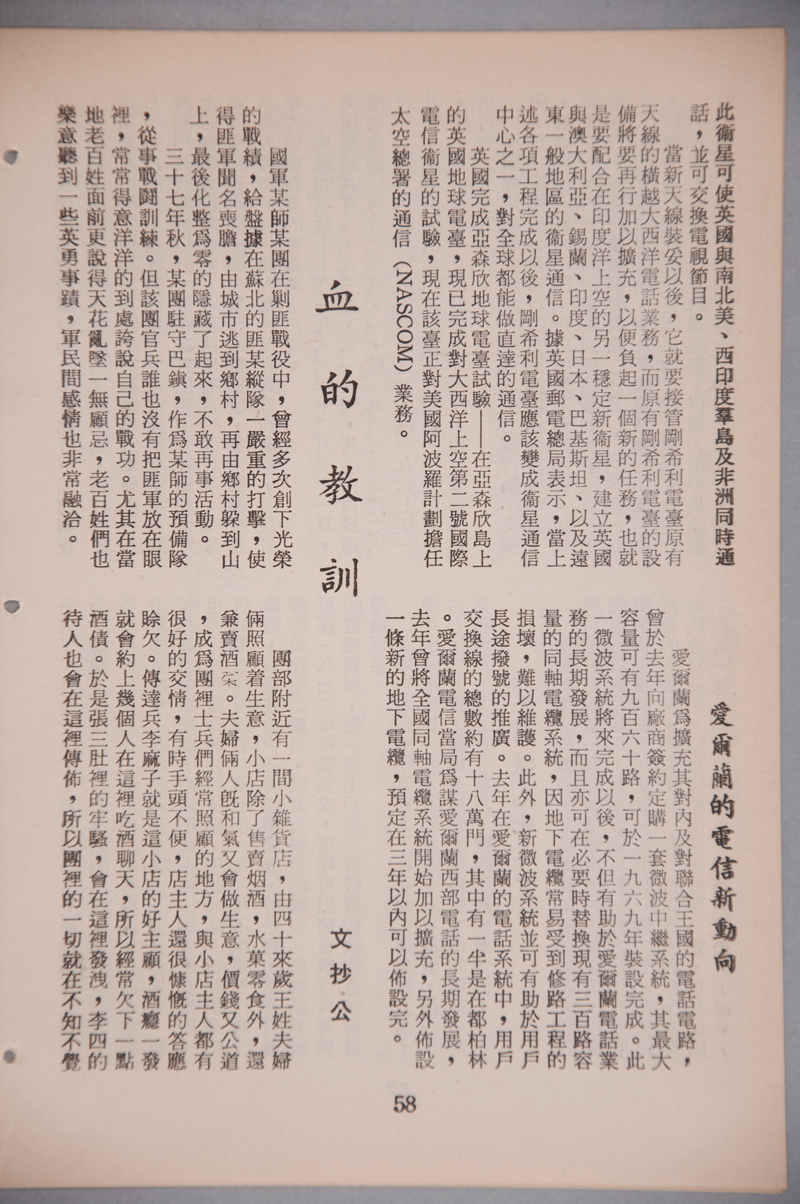 此衞星可使英國與南北美、西印度羣島及非洲同時通
話，並可交換電視節目。
當新天線裝妥以後，它就要接管剛希利電臺原有
天線的橫越大西洋電話業務，而原有剛希利電臺的設
備將要再行加以擴充，以便負起一個新的任務，也就
是要配合在印度洋上空的另一穩定新衞星，建立英國
與澳大利亞、錫蘭、印度、日本、巴基斯坦、以及遠
東一般地區的衞星通信。據英國郵電總局表示，當上
述各項工程完成以後，剛希利電臺應該變成衞星通信
中心之一，對全球都能做直達的通信。
英國完成亞森欣地球電臺試驗——在亞森欣島上
的英國地球電臺，現已完成對大西洋上空第二號國際
電信衞星的試驗，現在該臺正對美國阿波羅計劃擔任
太空總署的通信（NASCOM）業務。
愛爾蘭的電信新動向
愛爾蘭爲擴充其對內及對聯合王國的電話電路，
曾於去年向廠商簽約定購一套微波中繼系統，其最大
容量可有九百六十路，可於一九六九年裝設完成。此
一微波系統將來完成以後，不但有助於愛爾蘭電話業
務的長期發展，而且亦可在必要時替換現有三百路容
量的同軸電纜系統，因地下電纜常易受到修路工程的
損壞，難以維護。此外，新微波系統並可有助於用戶
長途撥號的推廣。去年在愛爾蘭的電話系統中，用戶
交換線的總數約有十八萬門，其中有一半是在都柏林
。愛爾蘭電信當局爲謀愛爾蘭西部電話的長期發展，
去年曾將全國同軸電纜系統開始加以擴充，另外佈設
一條新的地下電纜，預定在三年以內可以佈設完。
血的教訓
文抄公
國軍某師某團在剿匪戰役中，曾經多次創下光榮
的戰績，給盤據在蘇北的匪某縱隊一嚴重的打擊，使
得匪軍聞名喪膽，由城市逃到鄉村，再由鄉村躱到山
上，最後化整爲零的隱藏了起來，不敢再事活動。
三十七年秋，某團駐守巴鎭，作爲某師的預備隊
，從事戰鬪訓練。但該團官兵誰也沒有把匪軍放在眼
裡，常常得意洋洋的到處誇說自己的戰功。尤其在當
地老百姓面前更說得天花亂墜一無顧忌，老百姓們也
樂意聽到一些英勇事蹟，軍民間感情也非常融洽。
團部附近有一間小雜貨店，由四十來歲王姓夫婦
倆照顧着生意，小店除了售賣烟酒，水菓零食外，還
兼賣酒菜。夫婦倆人旣和氣又會做生意，價錢又公道
，成爲團裡士兵們經常照顧的地方，與小店主人都有
很好的交情，有時手頭不便，店主人還很慷慨的答應
賒欠。傳達兵李麻子就是這小店的好主顧，酒癮一發
就會約上幾個人在這裡吃酒聊天，所以經常欠下一點
酒債。於是張三肚裡的牢騷，會在這裡發洩，李四的
待人也會在這裡傳佈，所以團裡的一切就在不知不覺
58